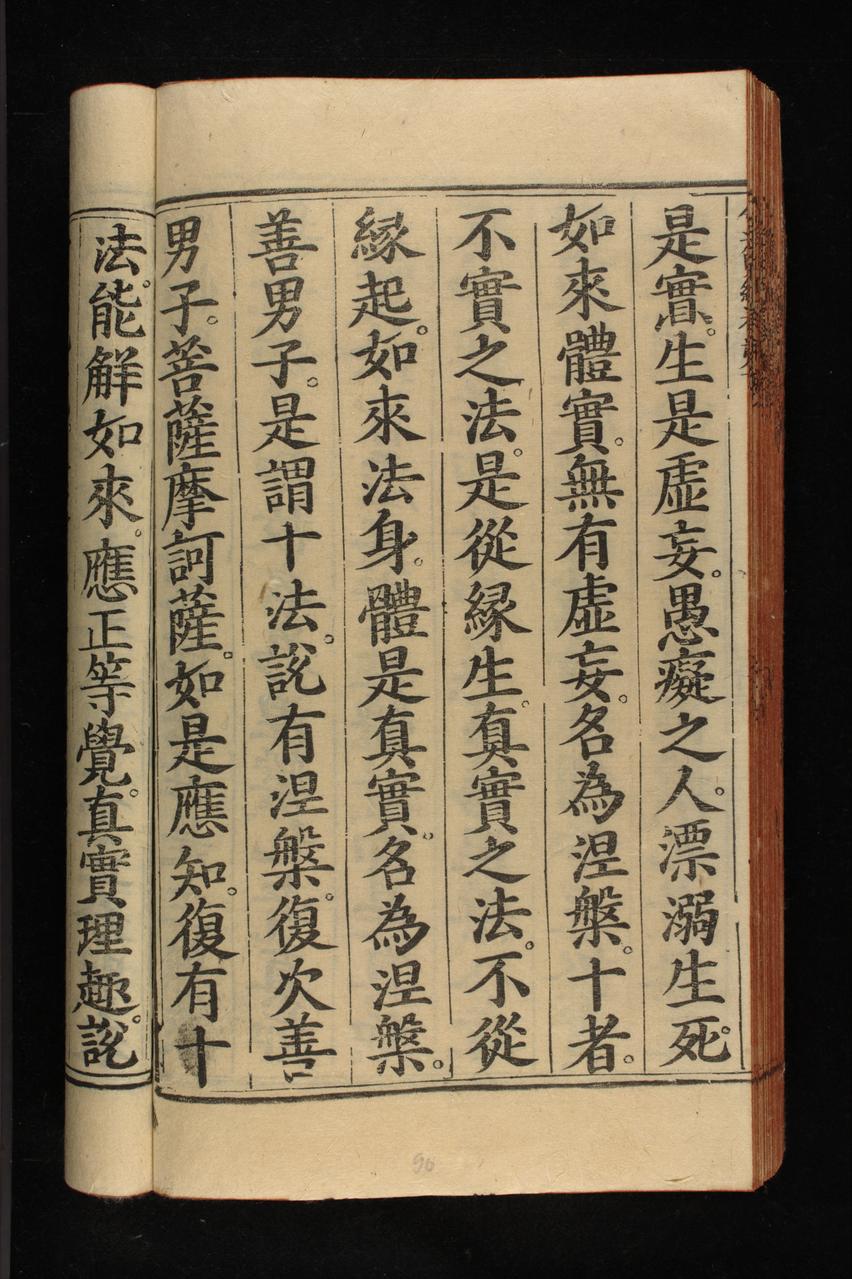 是實。生是虛妄。愚癡之人。漂溺生死。
如來體實。無有虛妄。名為涅槃。十者。
不實之法。是從緣生。真實之法。不從
緣起。如來法身。體是真實。名為涅槃。
善男子。是謂十法。說有涅槃。復次善
男子。菩薩摩訶薩。如是應知。復有十
法。能解如來。應正等覺。真實理趣。說
90